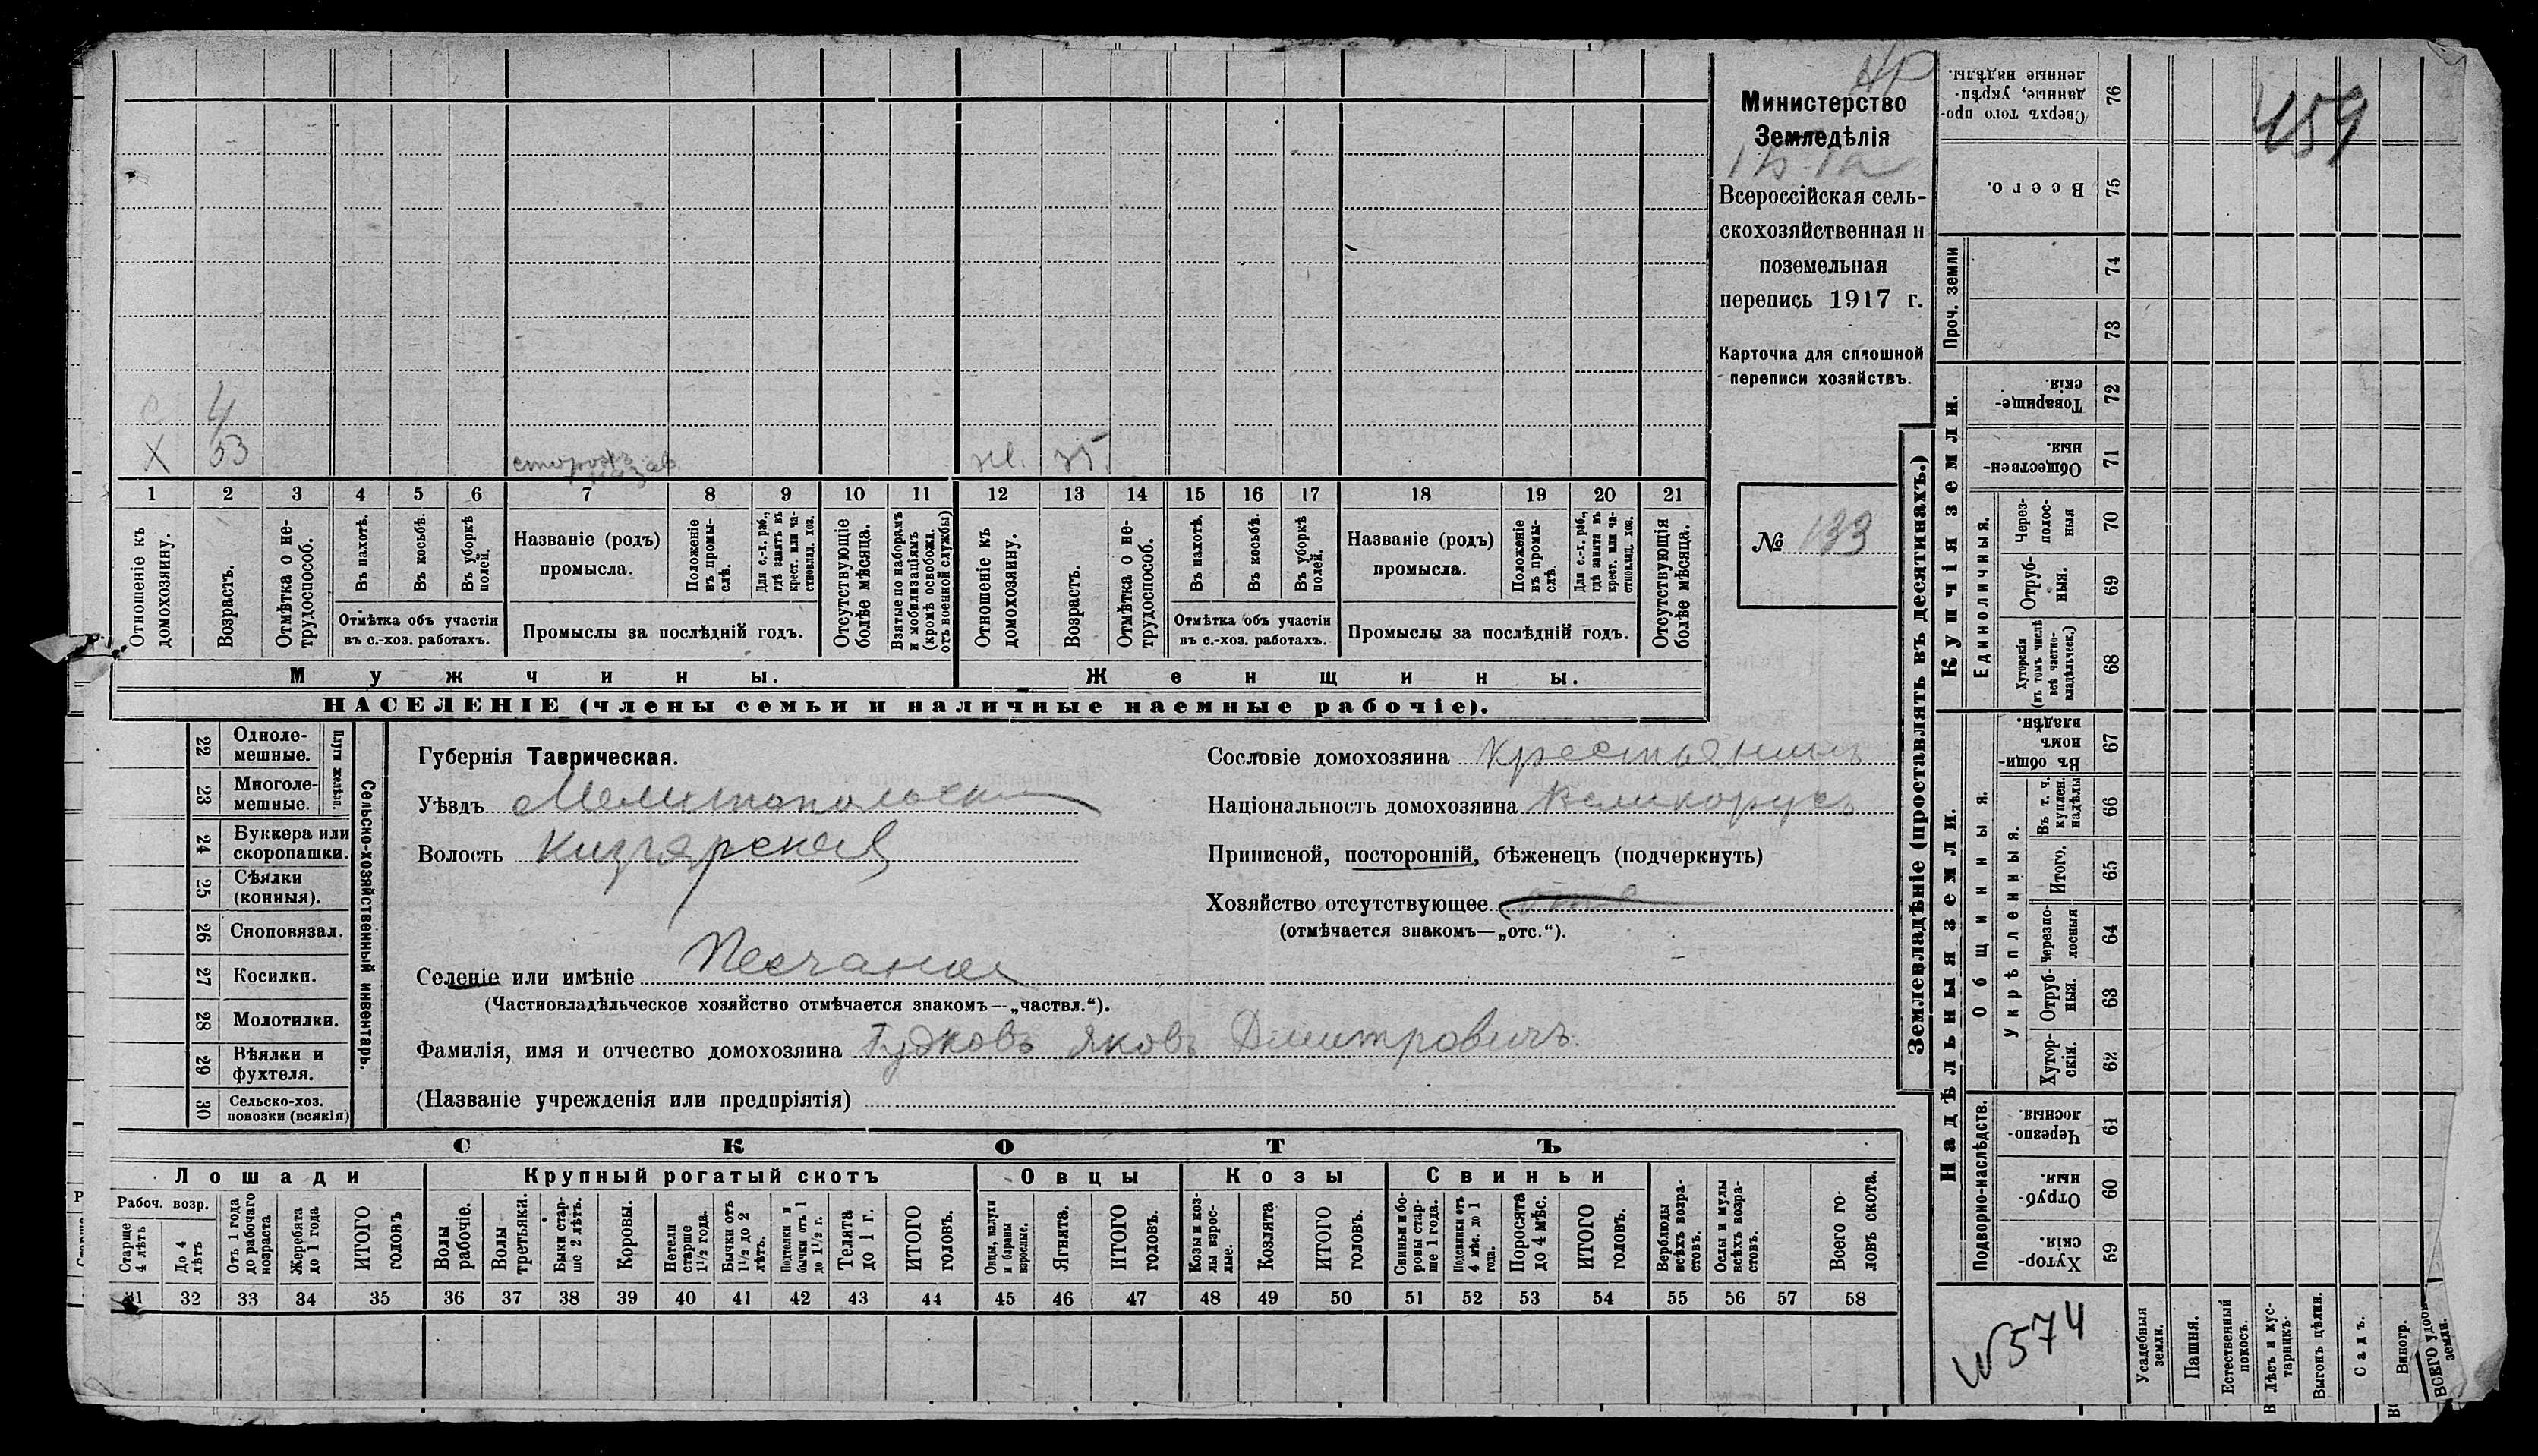 НР
Министерство
Земледѣлія
Всероссійская сель-
скохозяйственная и
поземельная
перепись 1917 г.
Карточка для сплошной
переписи хозяйствъ.
№ 133
459
с 4
Х 53 сторожъ жен. 35
1 2 3 4 5 6 7 8 9 10 11 12 13 14 15 16 17 18 19 20 21
Отношеніе къ домохозяину.
Возрастъ.
Отмѣтка о не-трудоспособ.
Въ пахотѣ.
Въ косьбѣ.
Въ уборкѣ полей.
Отмѣтка объ участіи
въ с.-хоз. работахъ.
Названіе (родъ)
промысла.
Положеніе въ промы-слѣ.
Для с.-х. раб., гдѣ занятъ въ крест. или ча-стновлад. хоз.
Промыслы за послѣдній годъ.
Отсутствующіе болѣе мѣсяца.
Взятые по наборамъ и мобилизаціямъ (кромѣ освобожд. отъ военной службы)
Отношеніе къ домохозяину.
Возрастъ.
Отмѣтка о не-трудоспособ.
Въ пахотѣ.
Въ косьбѣ.
Въ уборкѣ полей.
Отмѣтка объ участіи
въ с.-хоз. работахъ.
Названіе (родъ)
промысла.
Положеніе въ промы-слѣ.
Для с.-х. раб., гдѣ занята въ крест. или ча-стновлад. хоз.
Промыслы за послѣдній годъ.
Отсутствующія болѣе мѣсяца.
Мужчины.
Женщины.
НАСЕЛЕНІЕ (члены семьи и наличные наемные рабочіе).
22 Одноле-мешные.
23 Многоле-мешные.
Плуги желѣзн.
24 Буккера или скоропашки.
25 Сѣялки (конныя).
26 Сноповязал.
27 Косилки.
28 Молотилки.
29 Вѣялки и фухтеля.
30 Сельско-хоз. повозки (всякія)
Сельско-хозяйственный инвентарь.
Губернія Таврическая.
Уѣздъ Мелитопольскій
Волость Кизіярская
Селеніе или имѣніе Песчаное
(Частновладѣльческое хозяйство отмѣчается знакомъ—„частвл.“).
Фамилія, имя и отчество домохозяина Гудковъ Яковъ Дмитровичъ
(Названіе учрежденія или предпріятія)
Сословіе домохозяина крестьянинъ
Національность домохозяина Великорусъ
Приписной, посторонній, бѣженецъ (подчеркнуть)
Хозяйство отсутствующее отс
(отмѣчается знакомъ—„отс.“).
СКОТЪ
Лошади
Крупный рогатый скотъ
Овцы
Козы
Свиньи
Рабоч. возр.
Старше 4 лѣтъ
До 4 лѣтъ
Отъ 1 года до рабочаго возраста
Жеребята до 1 года
ИТОГО головъ
Волы рабочіе.
Волы третьяки.
Быки стар-ше 2 лѣтъ.
Коровы.
Нетели старше 1½ года.
Бычки отъ 1½ до 2 лѣтъ.
Подтелки и бычки отъ 1 до 1½ г.
Телята до 1 г.
ИТОГО головъ.
Овцы, валухи и бараны взрослые.
Ягнята.
ИТОГО головъ.
Козы и коз-лы взрос-лые.
Козлята
ИТОГО головъ.
Свиньи и бо-ровы стар-ше 1 года.
Подсвинки отъ 4 мѣс. до 1 года.
Поросята до 4 мѣс.
ИТОГО головъ.
Верблюды всѣхъ возра-стовъ.
Ослы и мулы всѣхъ возра-стовъ.
Всего го-ловъ скота.
31 32 33 34 35 36 37 38 39 40 41 42 43 44 45 46 47 48 49 50 51 52 53 54 55 56 57 58
Землевладѣніе (проставлять въ десятинахъ.)
Купчія земли.
Надѣльныя земли.
Сверхъ того про-данные, укрѣп-ленные надѣлы. 76
Всего. 75
Проч. земли
74
73
Товарище-скія. 72
Обществен-ныя. 71
Единоличныя.
Через-полос-ныя 70
Отруб-ныя. 69
Хуторскія (въ томъ числѣ всѣ частно-владѣльческ.) 68
Общинныя.
Въ общи-номъ владѣн. 67
укрѣпленныя.
Въ т. ч. куплен. надѣлы 66
Итого. 65
Черезпо-лосныя 64
Отруб-ныя. 63
Хутор-скія. 62
Подворно-наслѣдств.
Черезпо-лосныя. 61
Отруб-ныя 60
Хутор-скія. 59
№574
Усадебныя земли.
Пашня.
Естественный покосъ.
Лѣсъ и кус-тарникъ.
Выгонъ цѣлин.
Садъ.
Виногр.
ВСЕГО удобн. земли.